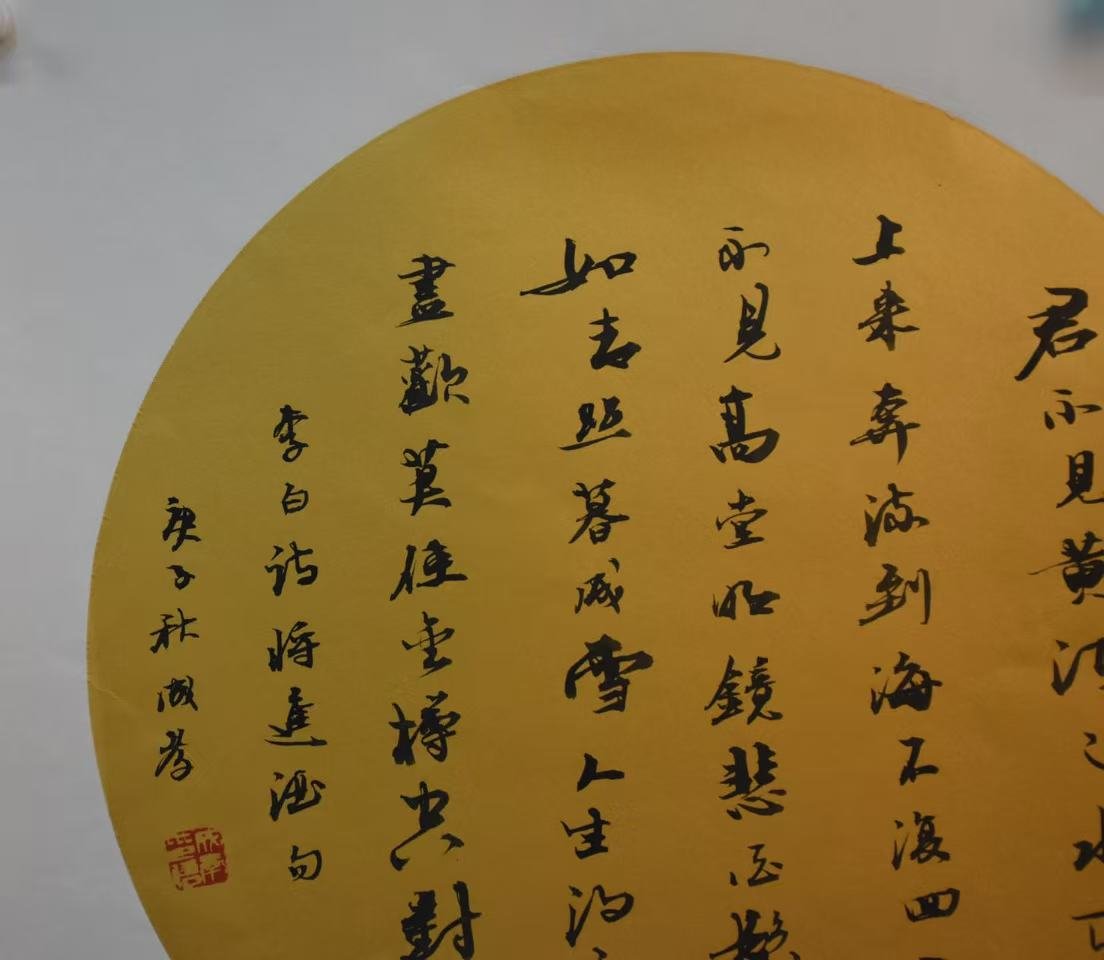 君不見黄河之水
上来奔流到海不復回
不見高堂明鏡悲白髮
如青丝暮成雪人生得
盡歡莫使金樽空對
李白詩將進酒句
庚子秋